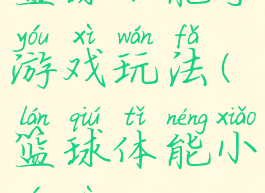 篮球体能小
yóu xì wán fǎ
游戏玩法(
lán qiú tǐ néng xiǎo
篮球体能小